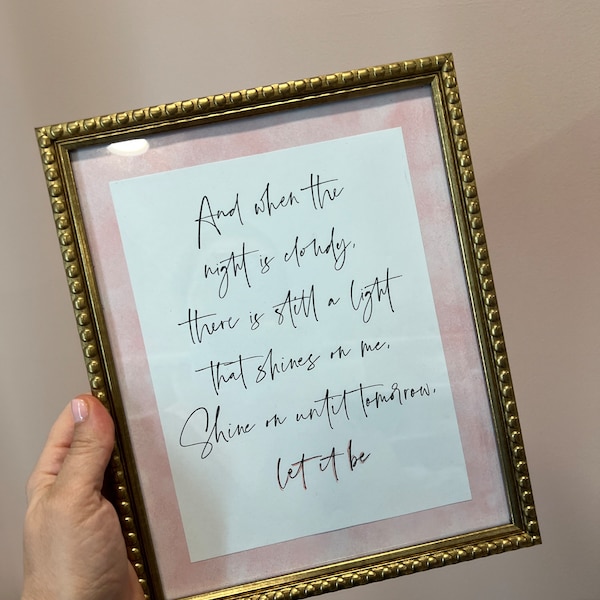 And when the
night is cloudy,
there is still a light
that shines on me,
Shine on until tomorrow,
let it be